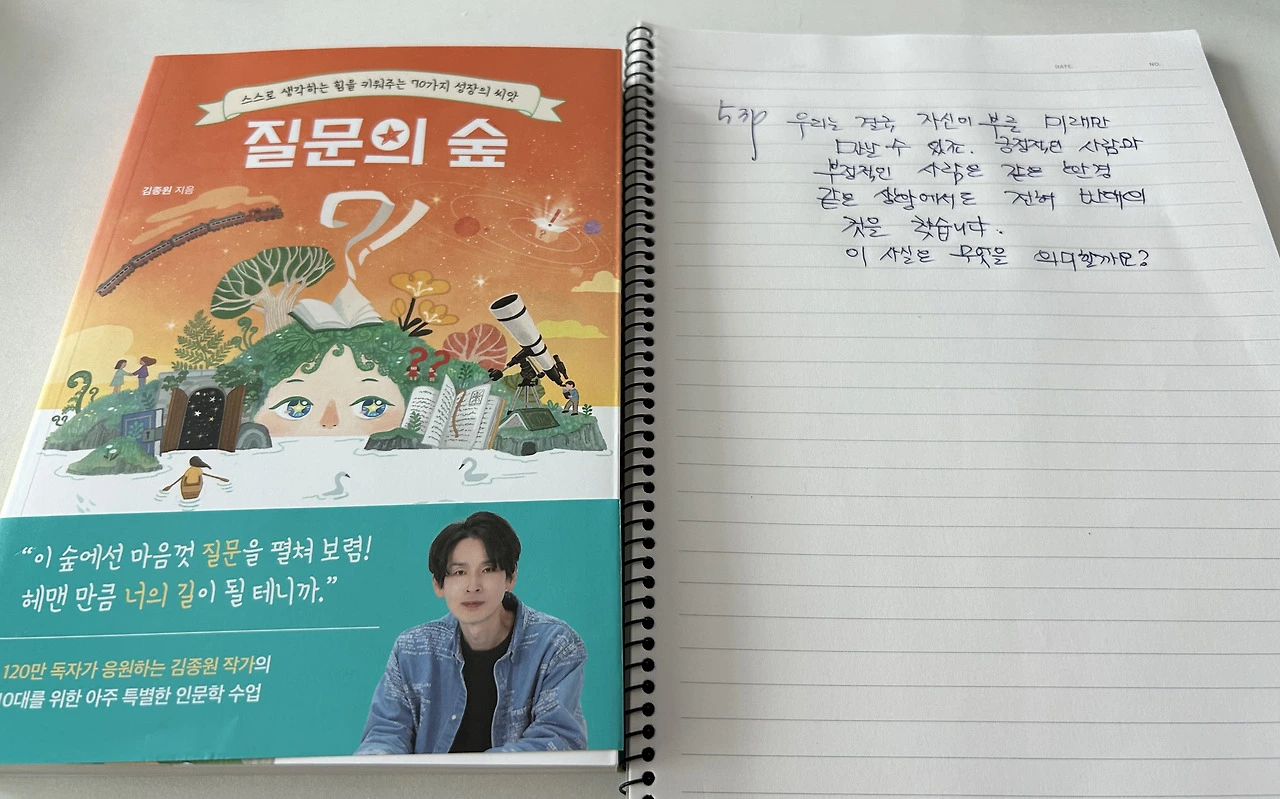 스스로 생각하는 힘을 키워주는 70가지 성장의 씨앗
질문의 숲
김종원 지음
“이 숲에선 마음껏 질문을 펼쳐 보렴!
헤맨 만큼 너의 길이 될 테니까.”
120만 독자가 응원하는 김종원 작가의
10대를 위한 아주 특별한 인문학 수업
DATE.
NO.
53p 우리는 결국 자신이 부른 미래만
만날 수 있죠. 긍정적인 사람과
부정적인 사람은 같은 환경
같은 상황에서도 전혀 반대의
것을 찾습니다.
이 사실은 무엇을 의미할까요?